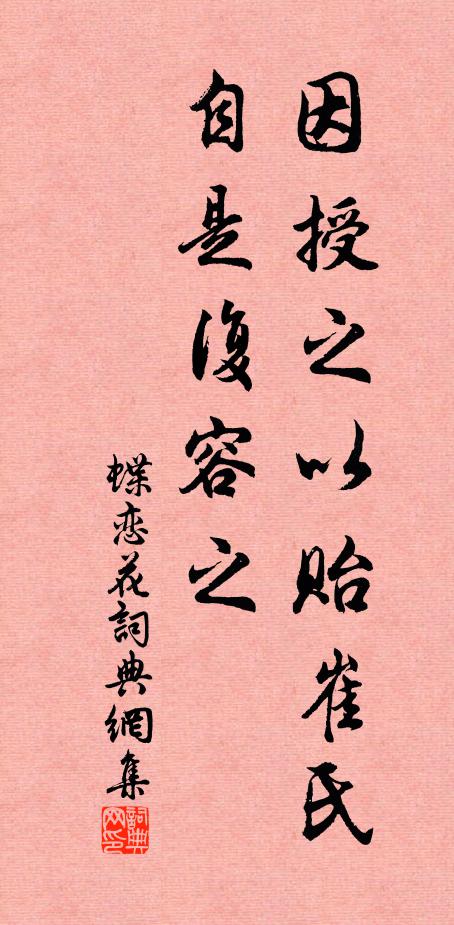 因授之以貽崔氏
自是復容之
蝶恋花詞典網集
詞典
网印